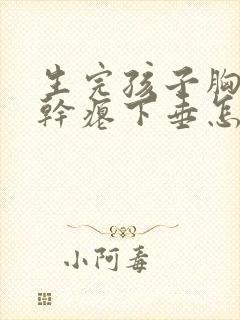 生完孩子胸
幹瘪下垂怎
小阿毒